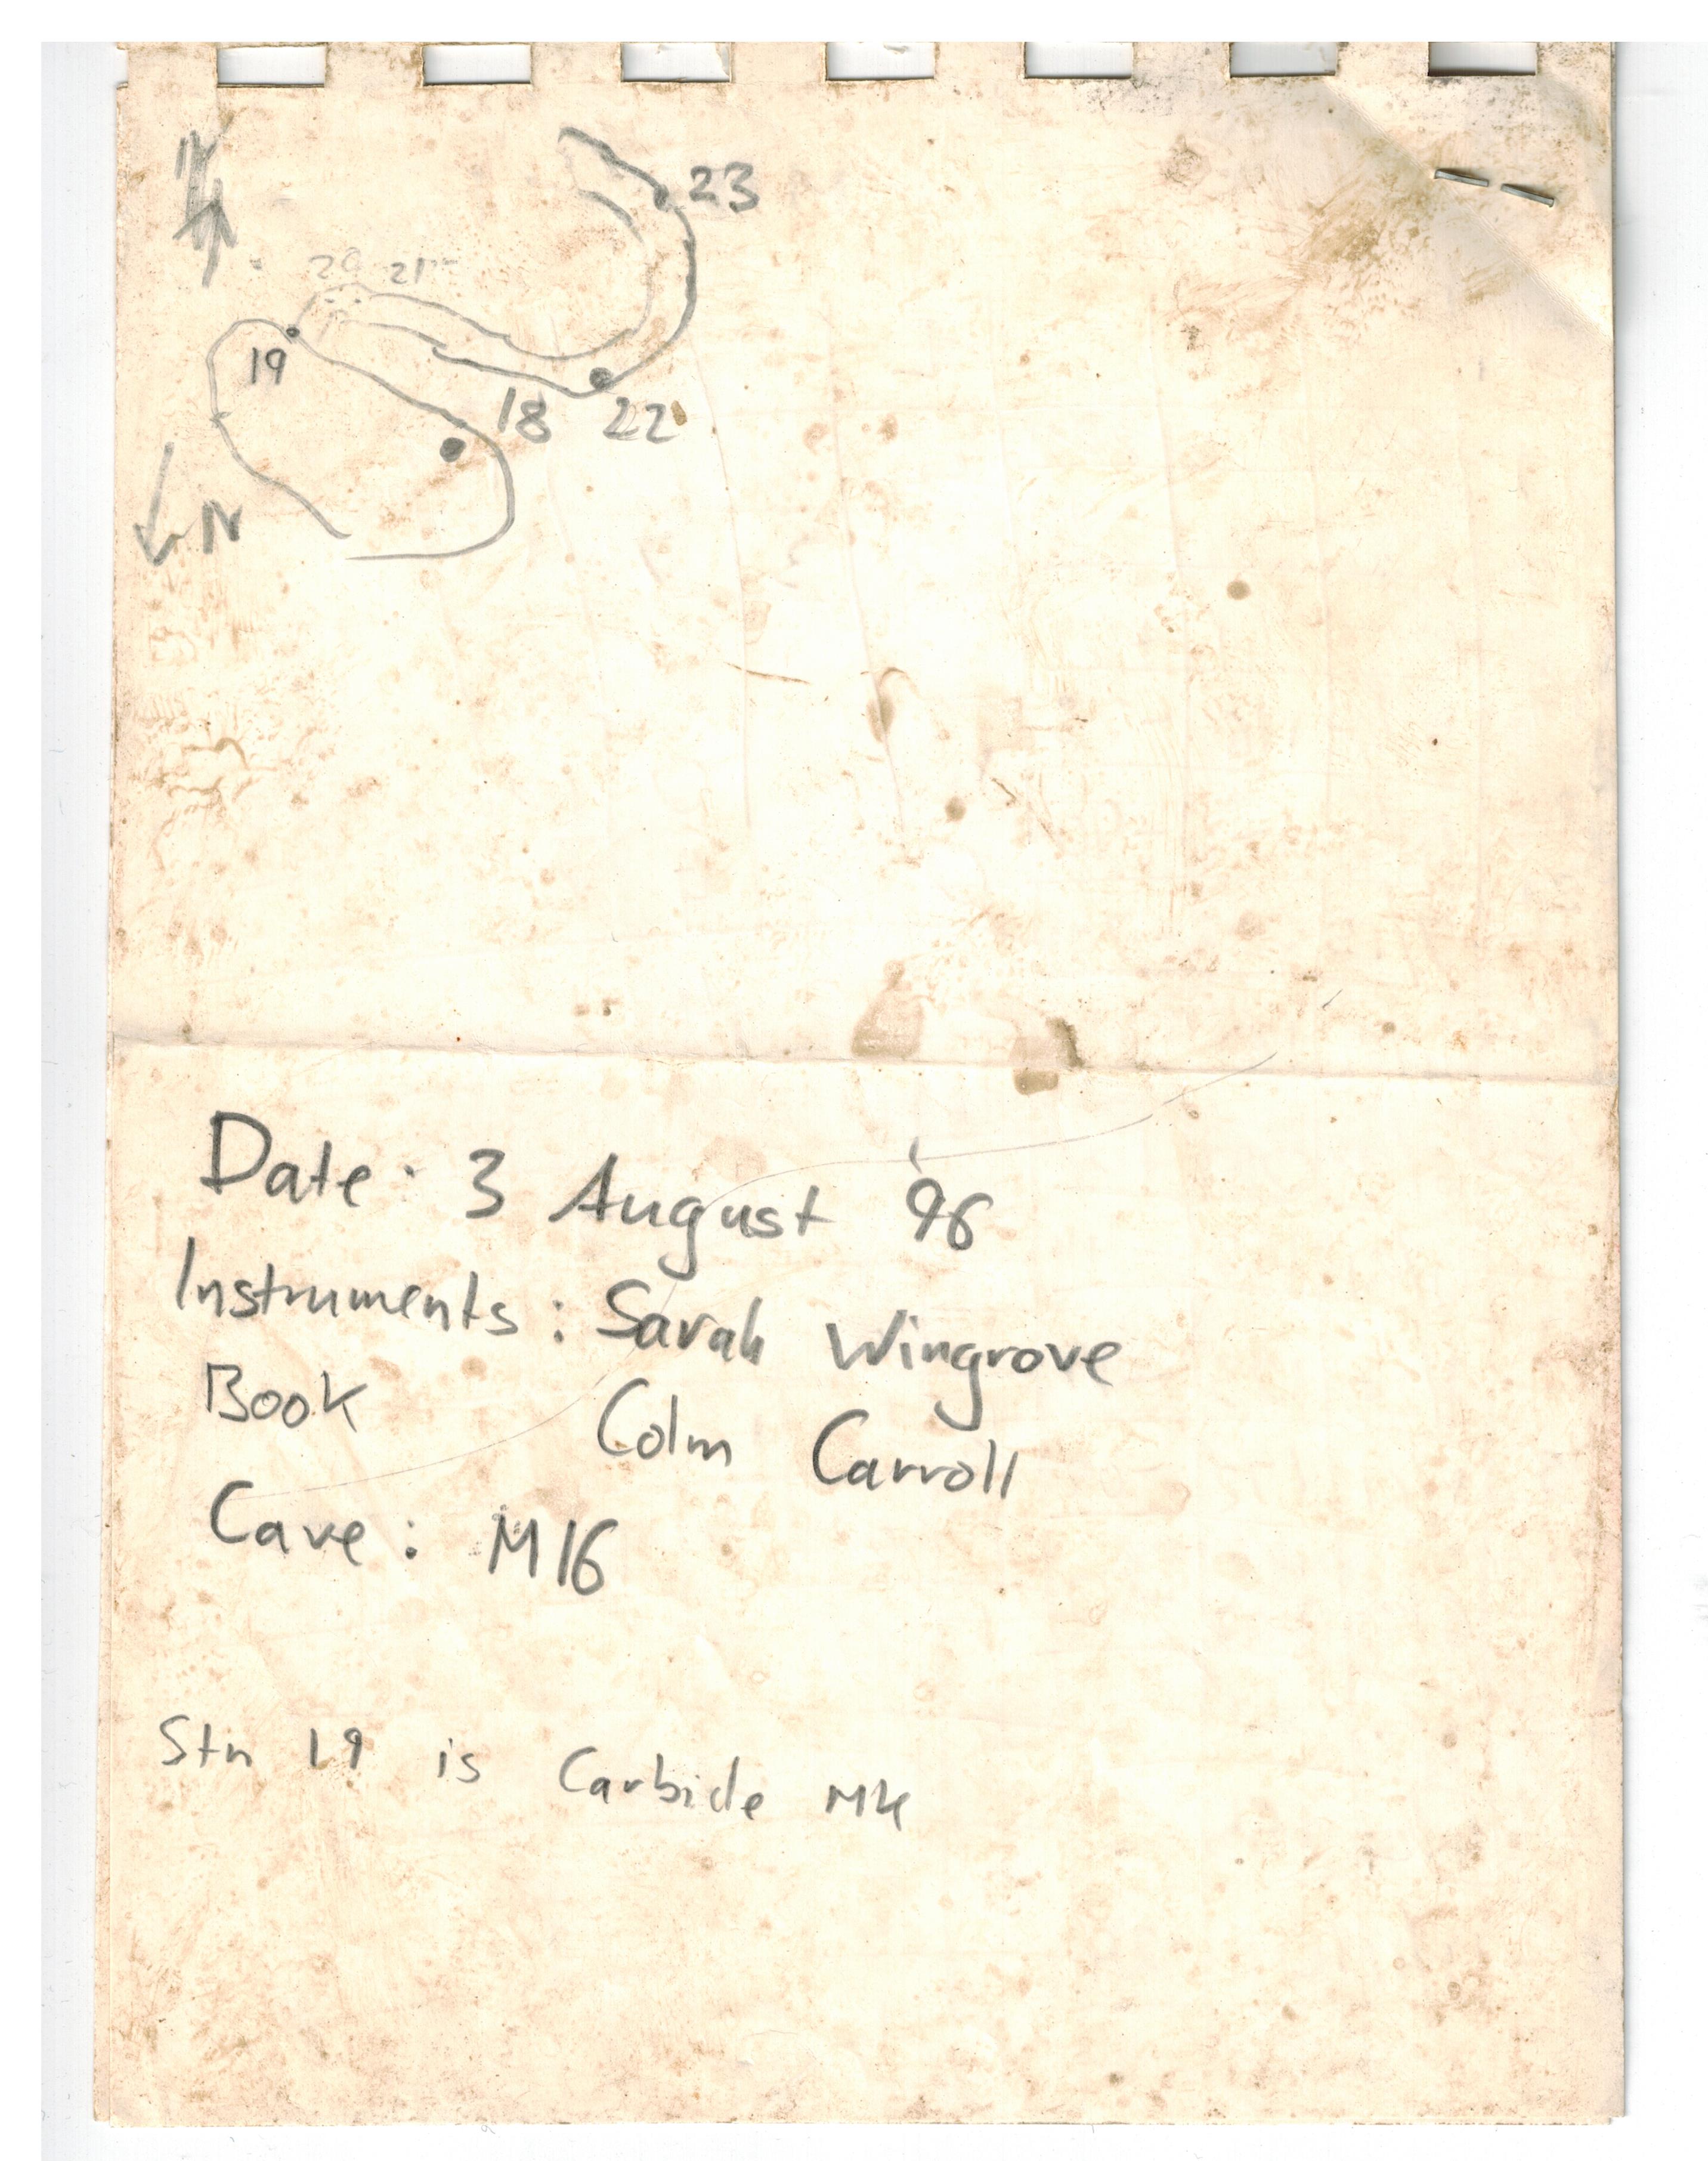 N
23
20 21
19
18 22
N
Date: 3 August '96
Instruments: Sarah Wingrove
Book Colm Carroll
Cave: M16
Stn 19 is Carbide Mk